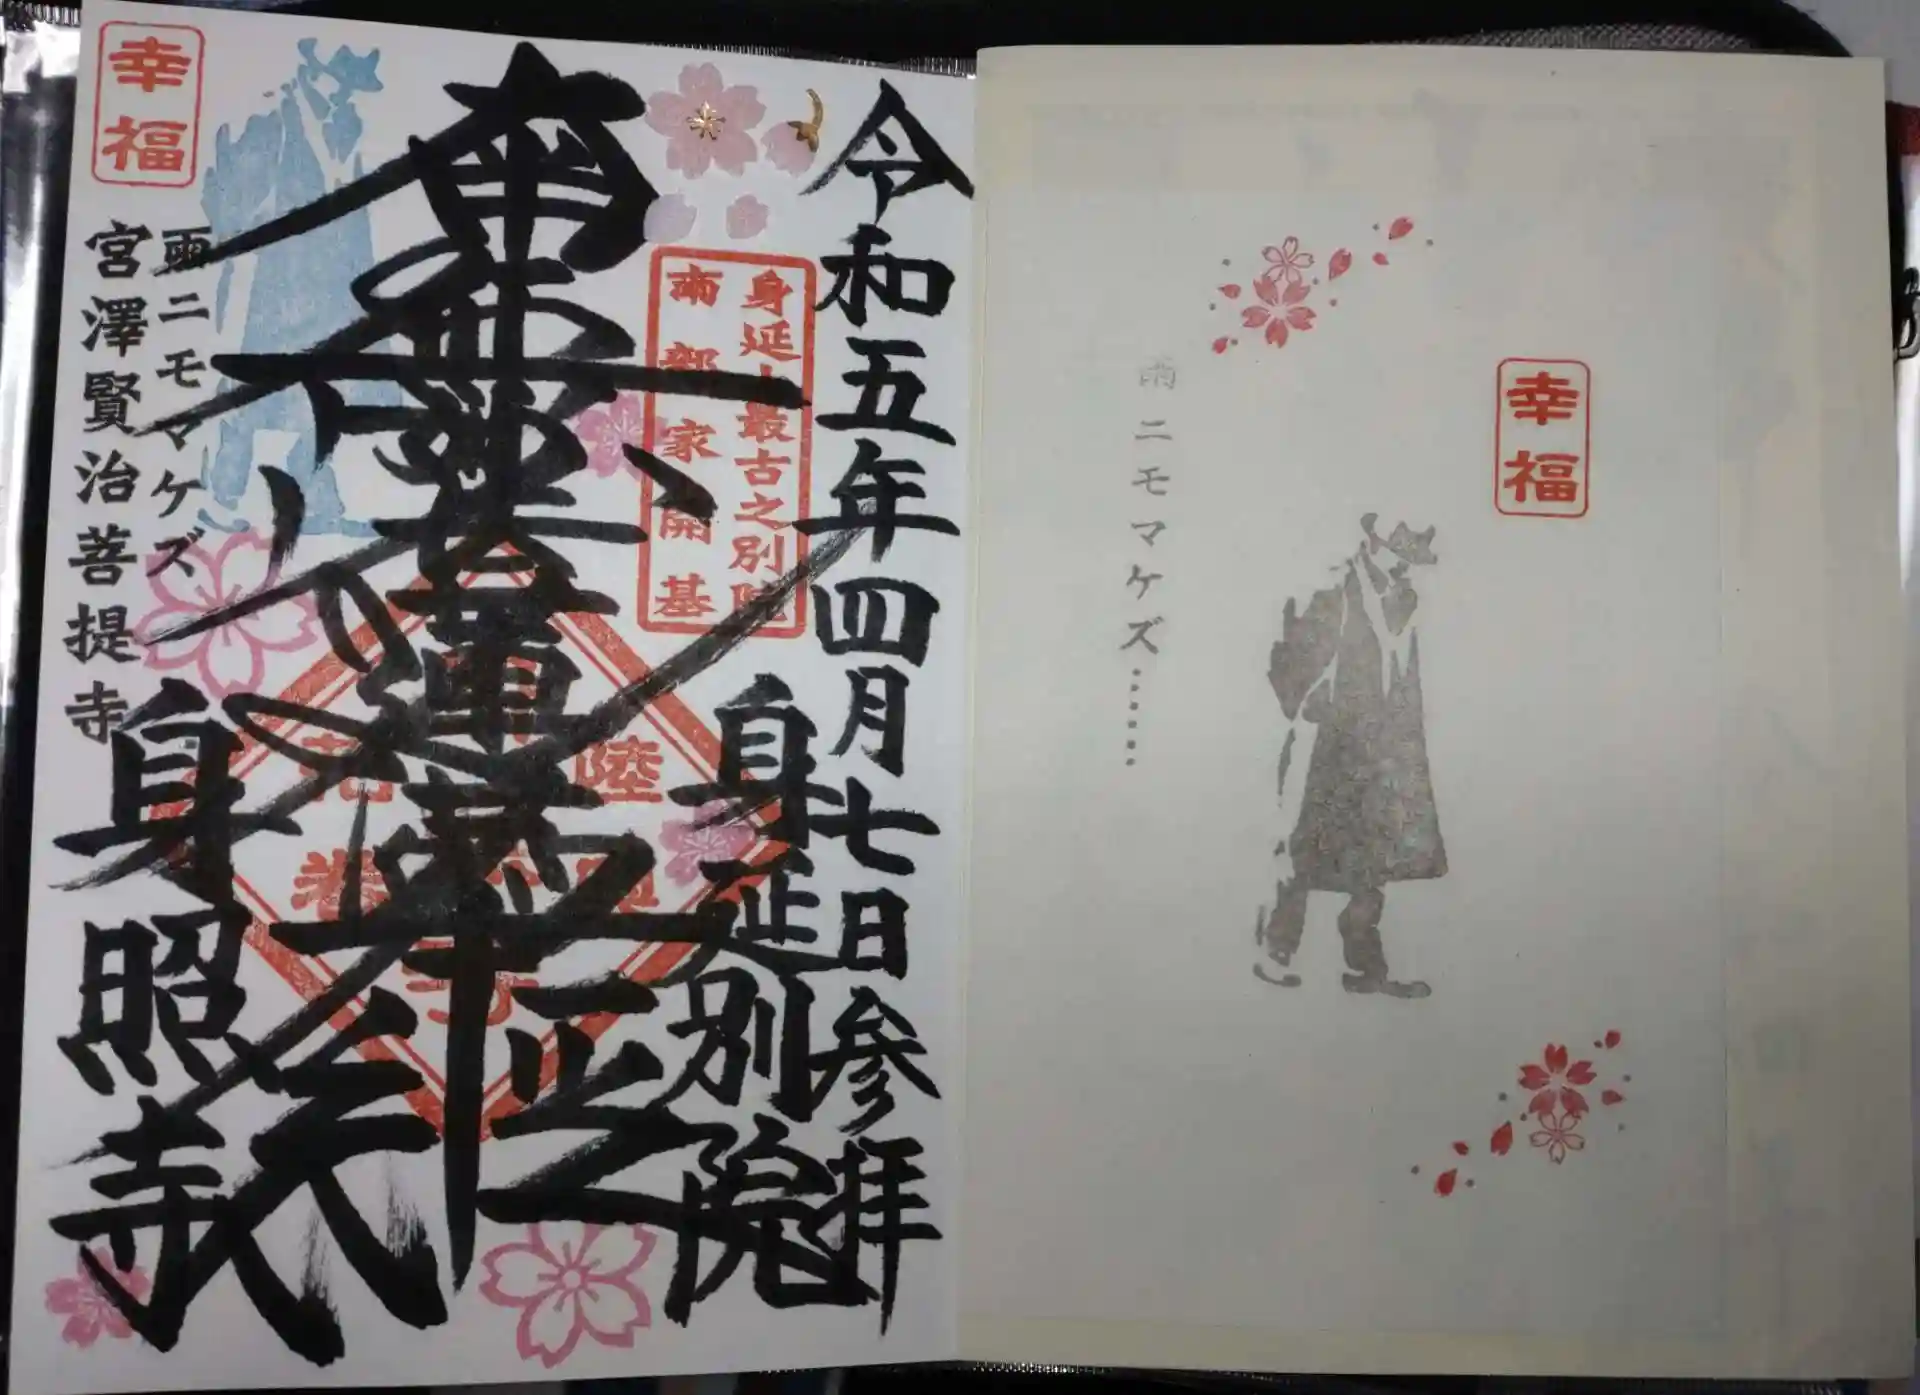 幸福
雨ニモマケズ……
令和五年四月七日参拝
身延別院
身延山最古之別院
南部家開基
南無妙法蓮華経
陸
花巻
幸福
雨ニモマケズ
宮澤賢治菩提寺
身照寺